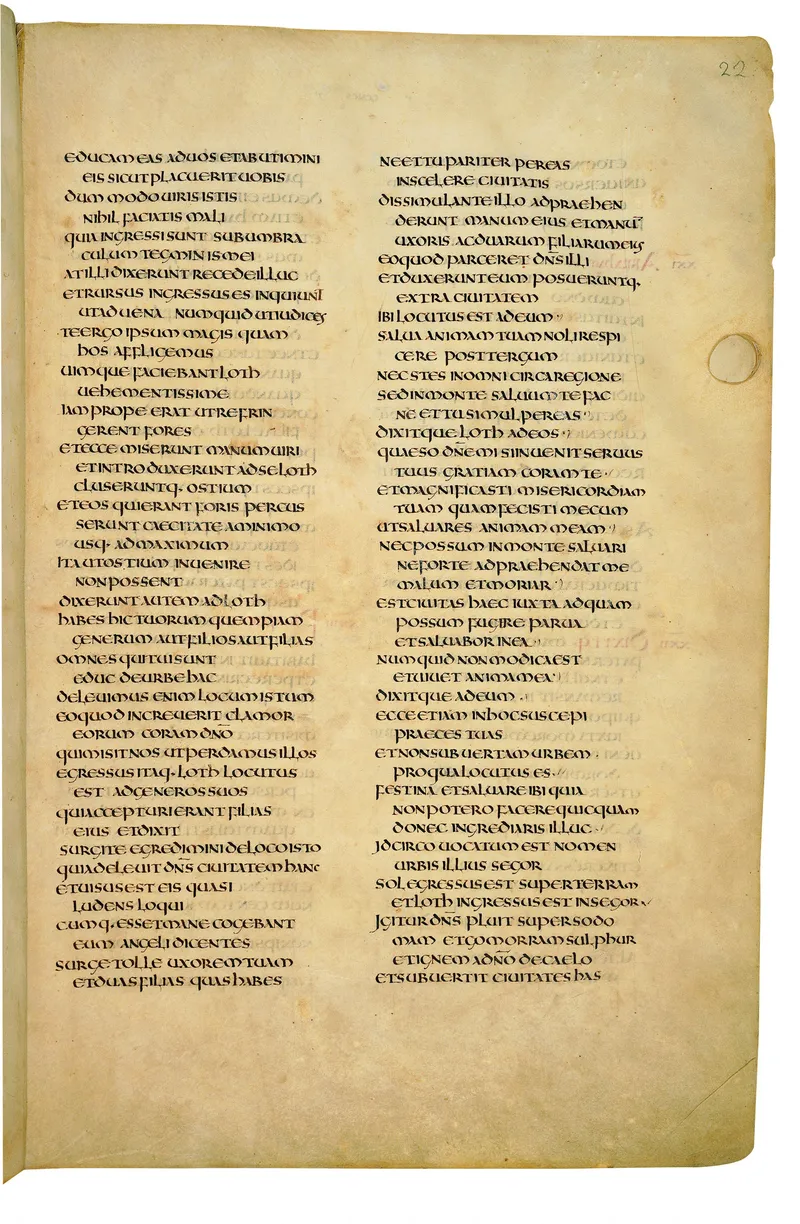 22
EDUCAM EAS ADUOS ETABUTIMINI
EIS SICUT PLACUERIT UOBIS
DUM MODO UIRIS ISTIS
NIHIL FACIATIS MALI
QUIA INGRESSI SUNT SUBUMBRA
CULUM TEGMINIS MEI
AT ILLI DIXERUNT RECEDE ILLUC
ET RURSUS INGRESSUS ES INQUIUNT
UT ADUENA NUMQUID UT IUDICES
TE ERGO IPSUM MAGIS QUAM
HOS AFFLIGEMUS
UIMQUE FACIEBANT LOTH
UEHEMENTISSIME
IAM PROPE ERAT UT REFRIN
GERENT FORES
ET ECCE MISERUNT MANUM UIRI
ET INTRODUXERUNT AD SE LOTH
CLUSERUNTQ· OSTIUM
ET EOS QUI ERANT FORIS PERCUS
SERUNT CAECITATE A MINIMO
USQ· AD MAXIMUM
ITA UT OSTIUM INUENIRE
NON POSSENT
DIXERUNT AUTEM AD LOTH
HABES HIC TUORUM QUEMPIAM
GENERUM AUT FILIOS AUT FILIAS
OMNES QUI TUI SUNT
EDUC DE URBE HAC
DELEUIMUS ENIM LOCUM ISTUM
EO QUOD INCREUERIT CLAMOR
EORUM CORAM DN̄O
QUI MISIT NOS UT PERDAMUS ILLOS
EGRESSUS ITAQ· LOTH LOCUTUS
EST AD GENEROS SUOS
QUI ACCEPTURI ERANT FILIAS
EIUS ET DIXIT
SURGITE EGREDIMINI DE LOCO ISTO
QUIA DELEUIT DN̄S CIUITATEM HANC
ET UISUS EST EIS QUASI
LUDENS LOQUI
CUMQ· ESSET MANE COGEBANT
EUM ANGELI DICENTES
SURGE TOLLE UXOREM TUAM
ET DUAS FILIAS QUAS HABES
NE ET TU PARITER PEREAS
IN SCELERE CIUITATIS
DISSIMULANTE ILLO ADPRAEHEN
DERUNT MANUM EIUS ET MANŪ
UXORIS AC DUARUM FILIARUM EIUS
EO QUOD PARCERET DN̄S ILLI
ET DUXERUNT EUM POSUERUNTQ·
EXTRA CIUITATEM
IBI LOCUTUS EST AD EUM
SALUA ANIMAM TUAM NOLI RESPI
CERE POST TERGUM
NEC STES IN OMNI CIRCA REGIONE
SED IN MONTE SALUUM TE FAC
NE ET TU SIMUL PEREAS
DIXITQUE LOTH AD EOS
QUAESO DN̄E MI SI INUENIT SERUUS
TUUS GRATIAM CORAM TE
ET MAGNIFICASTI MISERICORDIAM
TUAM QUAM FECISTI MECUM
UT SALUARES ANIMAM MEAM
NEC POSSUM IN MONTE SALUARI
NE FORTE ADPRAEHENDAT ME
MALUM ET MORIAR
EST CIUITAS HAEC IUXTA AD QUAM
POSSUM FUGIRE PARUA
ET SALUABOR IN EA
NUMQUID NON MODICA EST
ET UIUET ANIMA MEA
DIXITQUE AD EUM
ECCE ETIAM IN HOC SUSCEPI
PRAECES TUAS
ET NON SUBUERTAM URBEM
PRO QUA LOCUTUS ES
FESTINA ET SALUARE IBI QUIA
NON POTERO FACERE QUICQUAM
DONEC INGREDIARIS ILLUC
IDCIRCO UOCATUM EST NOMEN
URBIS ILLIUS SEGOR
SOL EGRESSUS EST SUPER TERRAM
ET LOTH INGRESSUS EST IN SEGOR
IGITUR DN̄S PLUIT SUPER SODO
MAM ET GOMORRAM SULPHUR
ET IGNEM A DN̄O DE CAELO
ET SUBUERTIT CIUITATES HAS